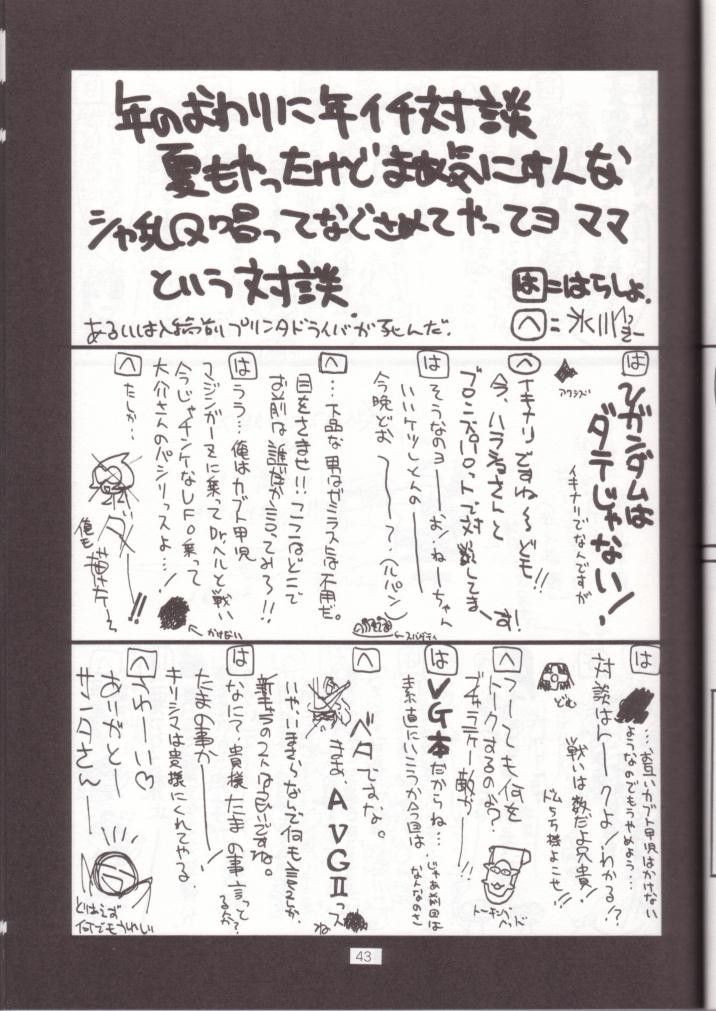 年のおわりに年イチ対談
夏もやったけどまぁ気にすんな
シャ乱Q唱ってなぐさめてやってヨ ママ
という対談
は=はらしょ.
へ=氷川
あるいは入稿前プリンタドライバが死んだ.
は
νガンダムは
ダテじゃない!
イキナリでなんですが
アクシズ
へ
イキナリですね〜ども!!
今、ハラショさんと
ブロンズパロットで対談してます!
は
そうなのヨーーお!ねーちゃん
いいケツしとんの
今晩どお〜〜?(パン)
←スパゲティ
へ
…下品な男はゼミラスには不用だ。
目をさませ!!ここはどこで
お前は誰だか言ってみろ!!
は
うぅ…俺はカブト甲児
マジンガーZに乗ってDr.ヘルと戦い
今じゃチンケなUFO乗って
大介さんのパシリっスよ…!
←かけない
へ
たしか…
ダーー!!
俺も描けた〜
は
…、お互いカブト甲児はかけない
ようなのでもうやめよう…
対談はトークよ!わかる!?
戦いは数だよ兄貴!
ドムもう6機よこせ!!
どむ
へ
つーても何を
トークするのよ?
ブギャラテー敵か——!!
トーキングヘッド
は
VG本だからね…
素直にいこうか今回は
じゃあ前回は
なんなのさ
へ
ベタですな。
まま、AVGIIっスね
いや、いまさらなんで何も言えんが、
新キャラの2人は良いですね。
は
なにて、貴様たまの事言ってるか?
たまの事かーーー!
キリシマは貴様にくれてやる.
へ
うわーい♡
ありがとー
サンタさんー
とりあえず
何でもうれしい
43